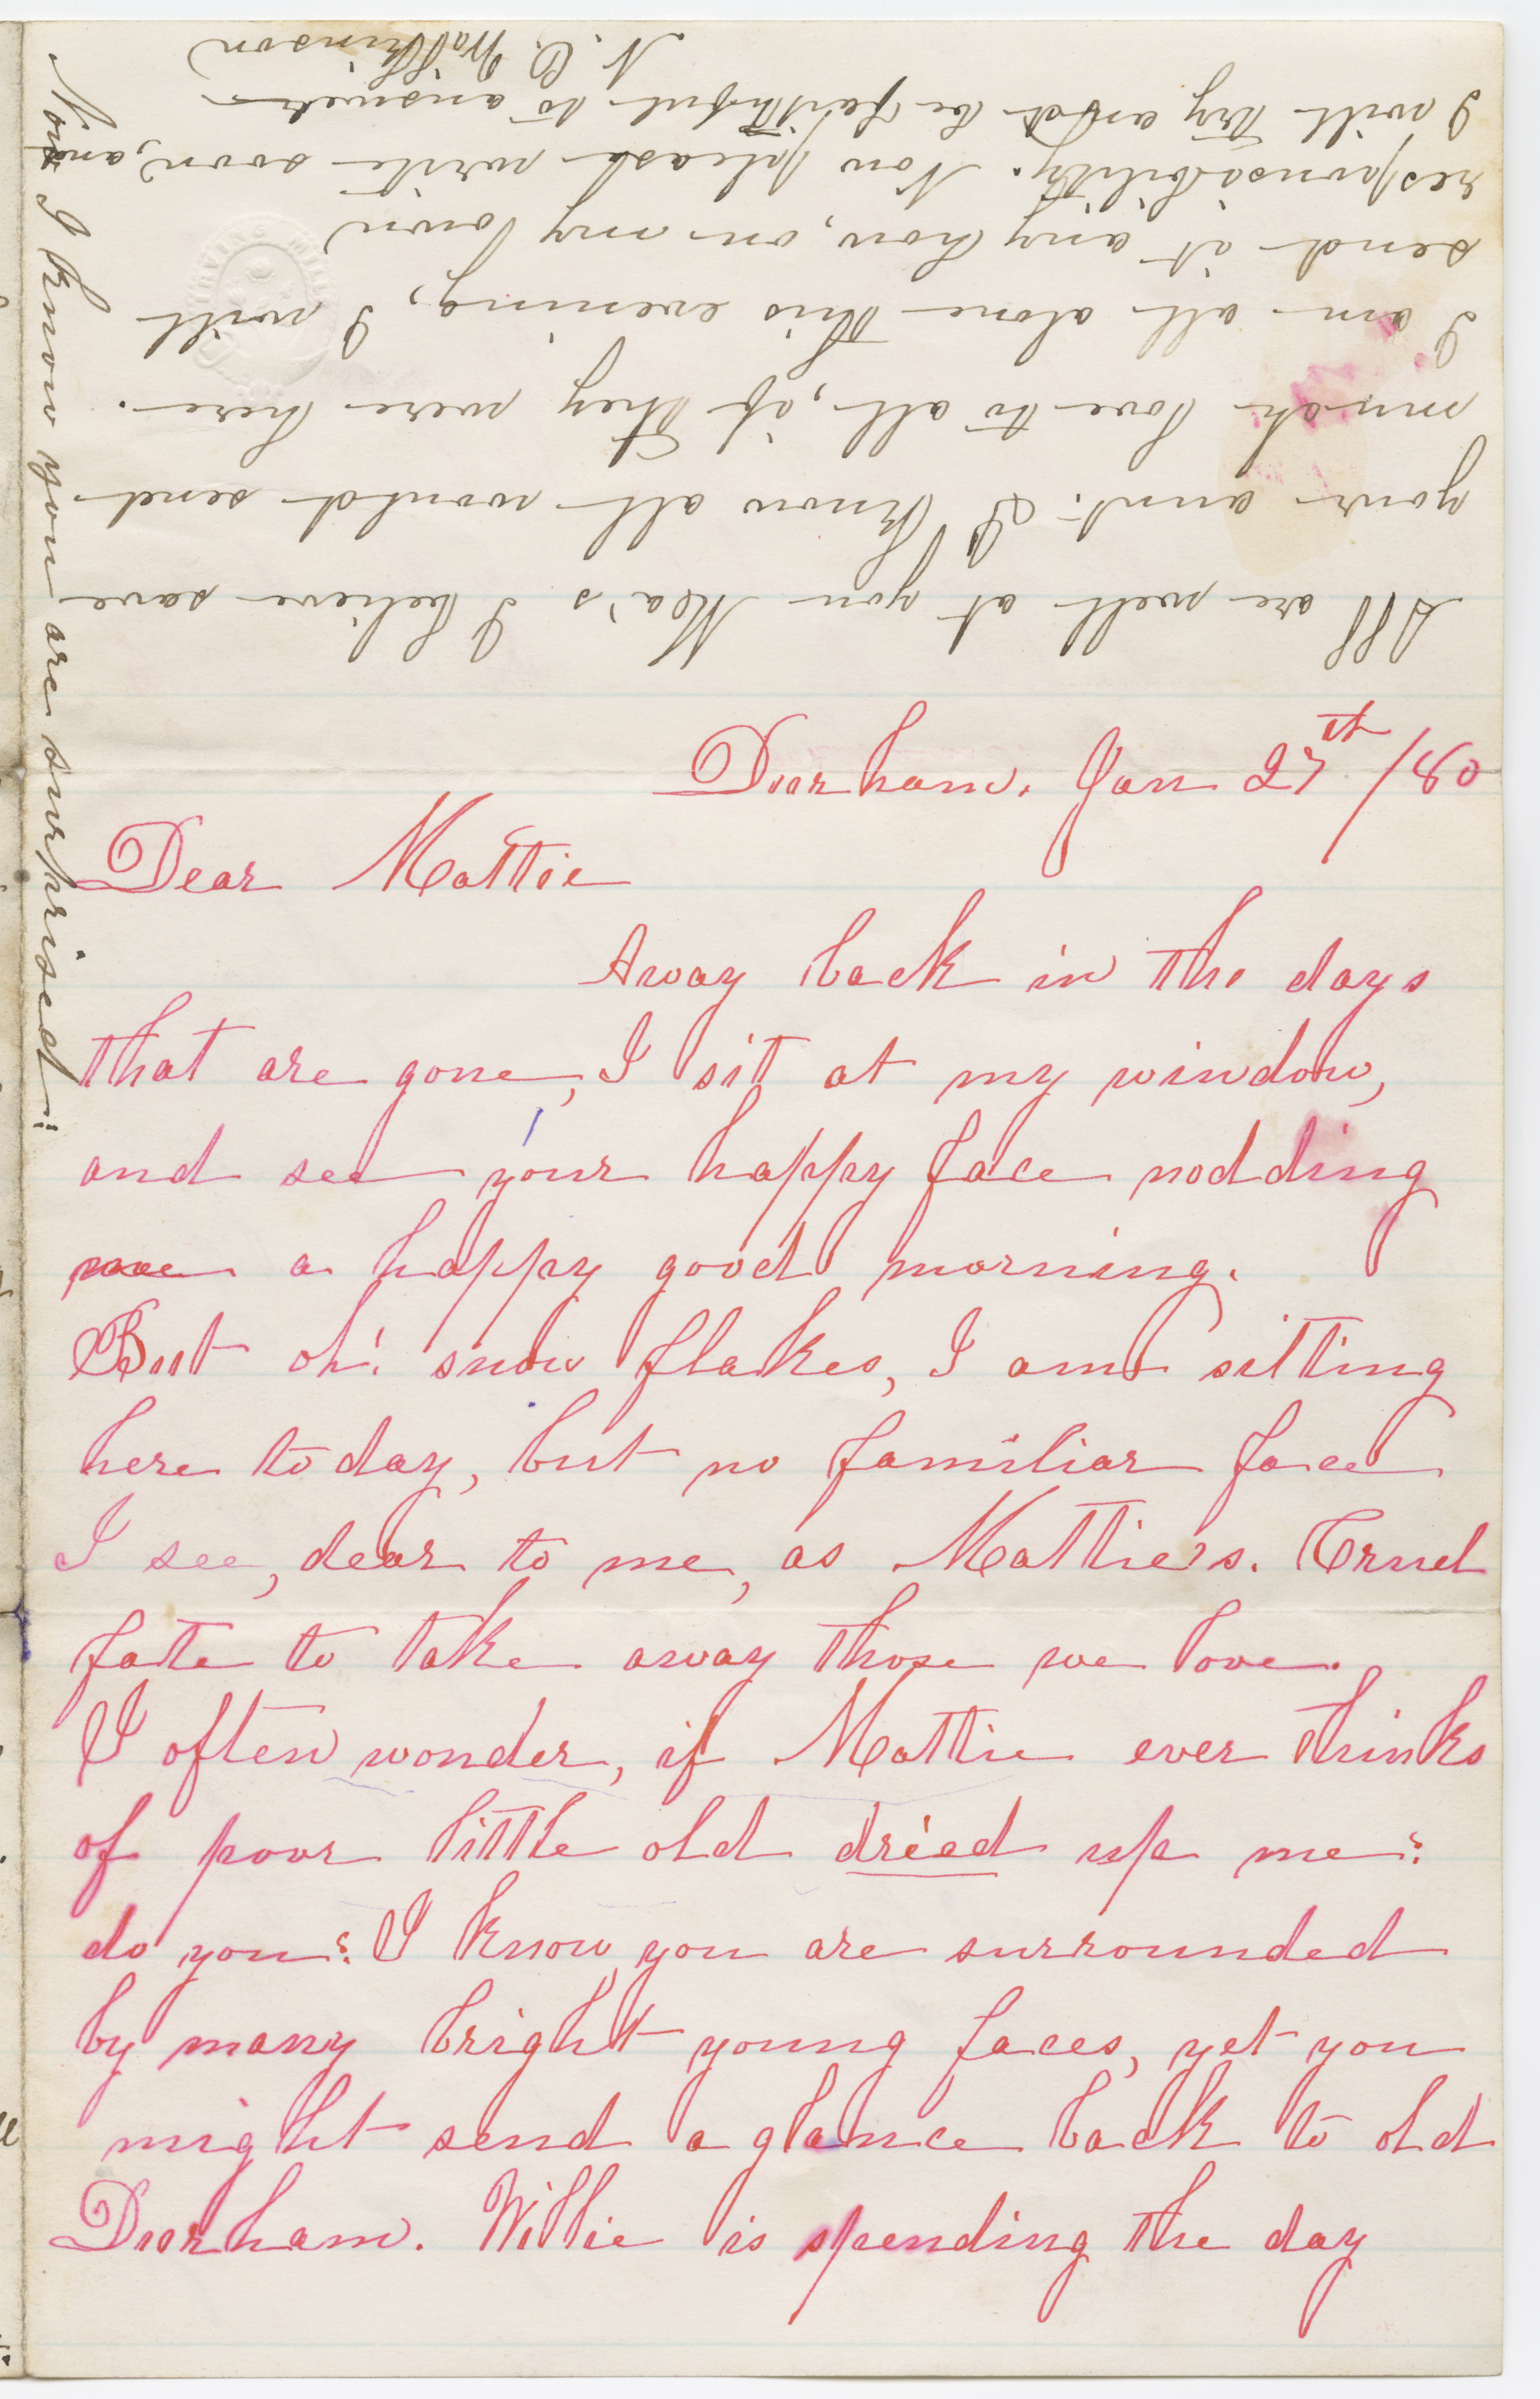 Durham. Jan 27th /80
Dear Mattie
Away back in the days
that are gone, I sit at my window,
and see your happy face nodding
a happy good morning.
But oh! snow flakes, I am sitting
here today, but no familiar face
I see, dear to me, as Mattie's. Cruel
fate to take away those we love.
I often wonder, if Mattie ever thinks
of poor little old dried up me?
do you? I know you are surrounded
by many bright young faces, yet you
might send a glance back to old
Durham. Willie is spending the day
All are well at you Moa's I believe save
your aunt. I know all would send
much love to all, if they were here.
I am all alone this evening, I will
send it any how, on my own
responsibility. Now please write soon, and
I will try and be faithful to answer
N. C. Watkinson
Now I know you are surprised!!
IRVING MILL